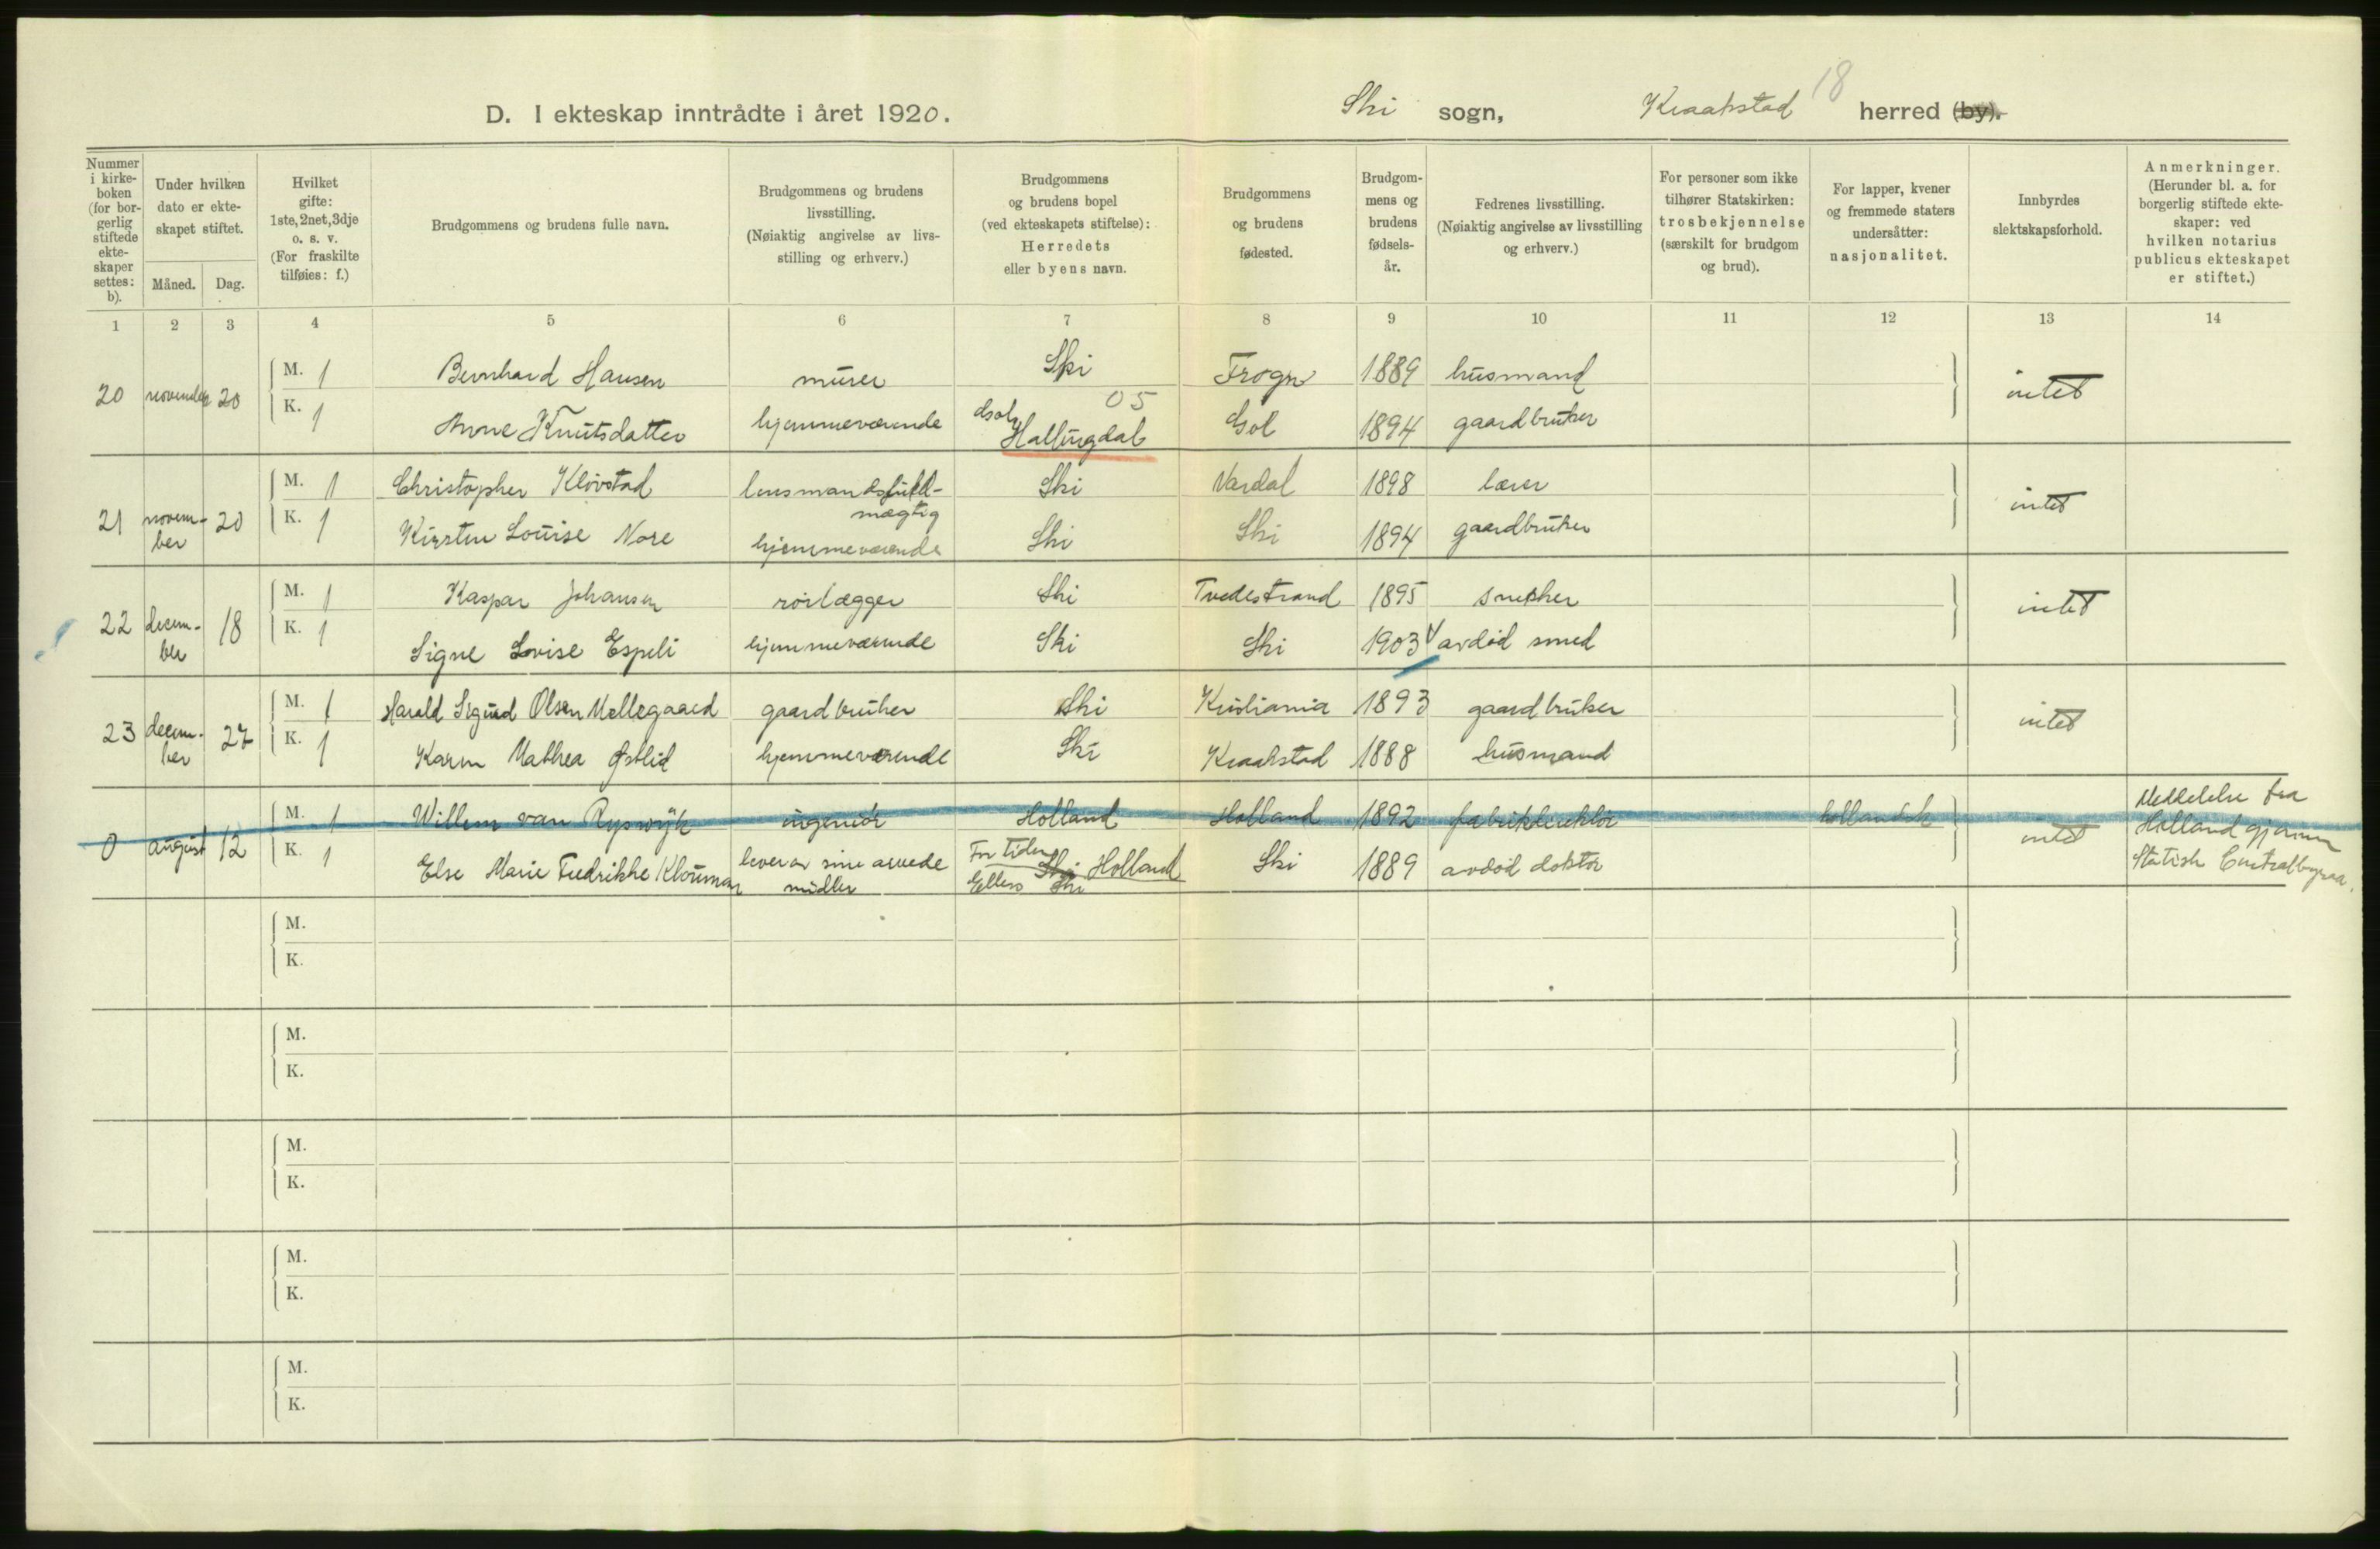 18
D. I ekteskap inntrådte i året 1920. Ski sogn, Kraakstad herred (by).
Nummer i kirkeboken (for borgerlig stiftede ekteskaper settes: b).
Under hvilken dato er ekteskapet stiftet.
Måned. Dag.
Hvilket gifte: 1ste, 2net, 3dje o. s. v. (For fraskilte tilføies: f.)
Brudgommens og brudens fulle navn.
Brudgommens og brudens livsstilling. (Nøiaktig angivelse av livsstilling og erhverv.)
Brudgommens og brudens bopel (ved ekteskapets stiftelse): Herredets eller byens navn.
Brudgommens og brudens fødested.
Brudgommens og brudens fødselsår.
Fedrenes livsstilling. (Nøiaktig angivelse av livsstilling og erhverv.)
For personer som ikke tilhører Statskirken: trosbekjennelse (særskilt for brudgom og brud).
For lapper, kvener og fremmede staters undersåtter: nasjonalitet.
Innbyrdes slektskapsforhold.
Anmerkninger. (Herunder bl. a. for borgerlig stiftede ekteskaper: ved hvilken notarius publicus ekteskapet er stiftet.)
1 2 3 4 5 6 7 8 9 10 11 12 13 14
20 november 20 M. 1 Bernhard Hansen murer Ski Frogn 1889 husmand intet
K. 1 Anne Knutsdatter hjemmeværende Hallingdal 05 Gol 1894 gaardbruker
21 november 20 M. 1 Christopher Klövstad lensmandsfuldmægtig Ski Vardal 1898 lærer intet
K. 1 Kirsten Louise Nore hjemmeværende Ski Ski 1894 gaardbruker
22 december 18 M. 1 Kaspar Johansen rörlægger Ski Tvedestrand 1895 snekker intet
K. 1 Signe Lovise Espeli hjemmeværende Ski Ski 1903 avdöd smed
23 december 27 M. 1 Harald Sigurd Olsen Mellegaard gaardbruker Ski Kristiania 1893 gaardbruker intet
K. 1 Karen Mathea Østlid hjemmeværende Ski Kraakstad 1888 husmand
0 august 12 M. 1 Willem van Ryswÿk ingeniör Holland Holland 1892 fabrikdirektör hollandsk intet Meddelelse fra
Holland gjennem
Statisk Centralbyraa.
K. 1 Else Marie Fredrikke Klouman lever av sine arvede midler For tiden Ski Holland Ellers Ski Ski 1889 avdöd doktor
M.
K.
M.
K.
M.
K.
M.
K.
M.
K.